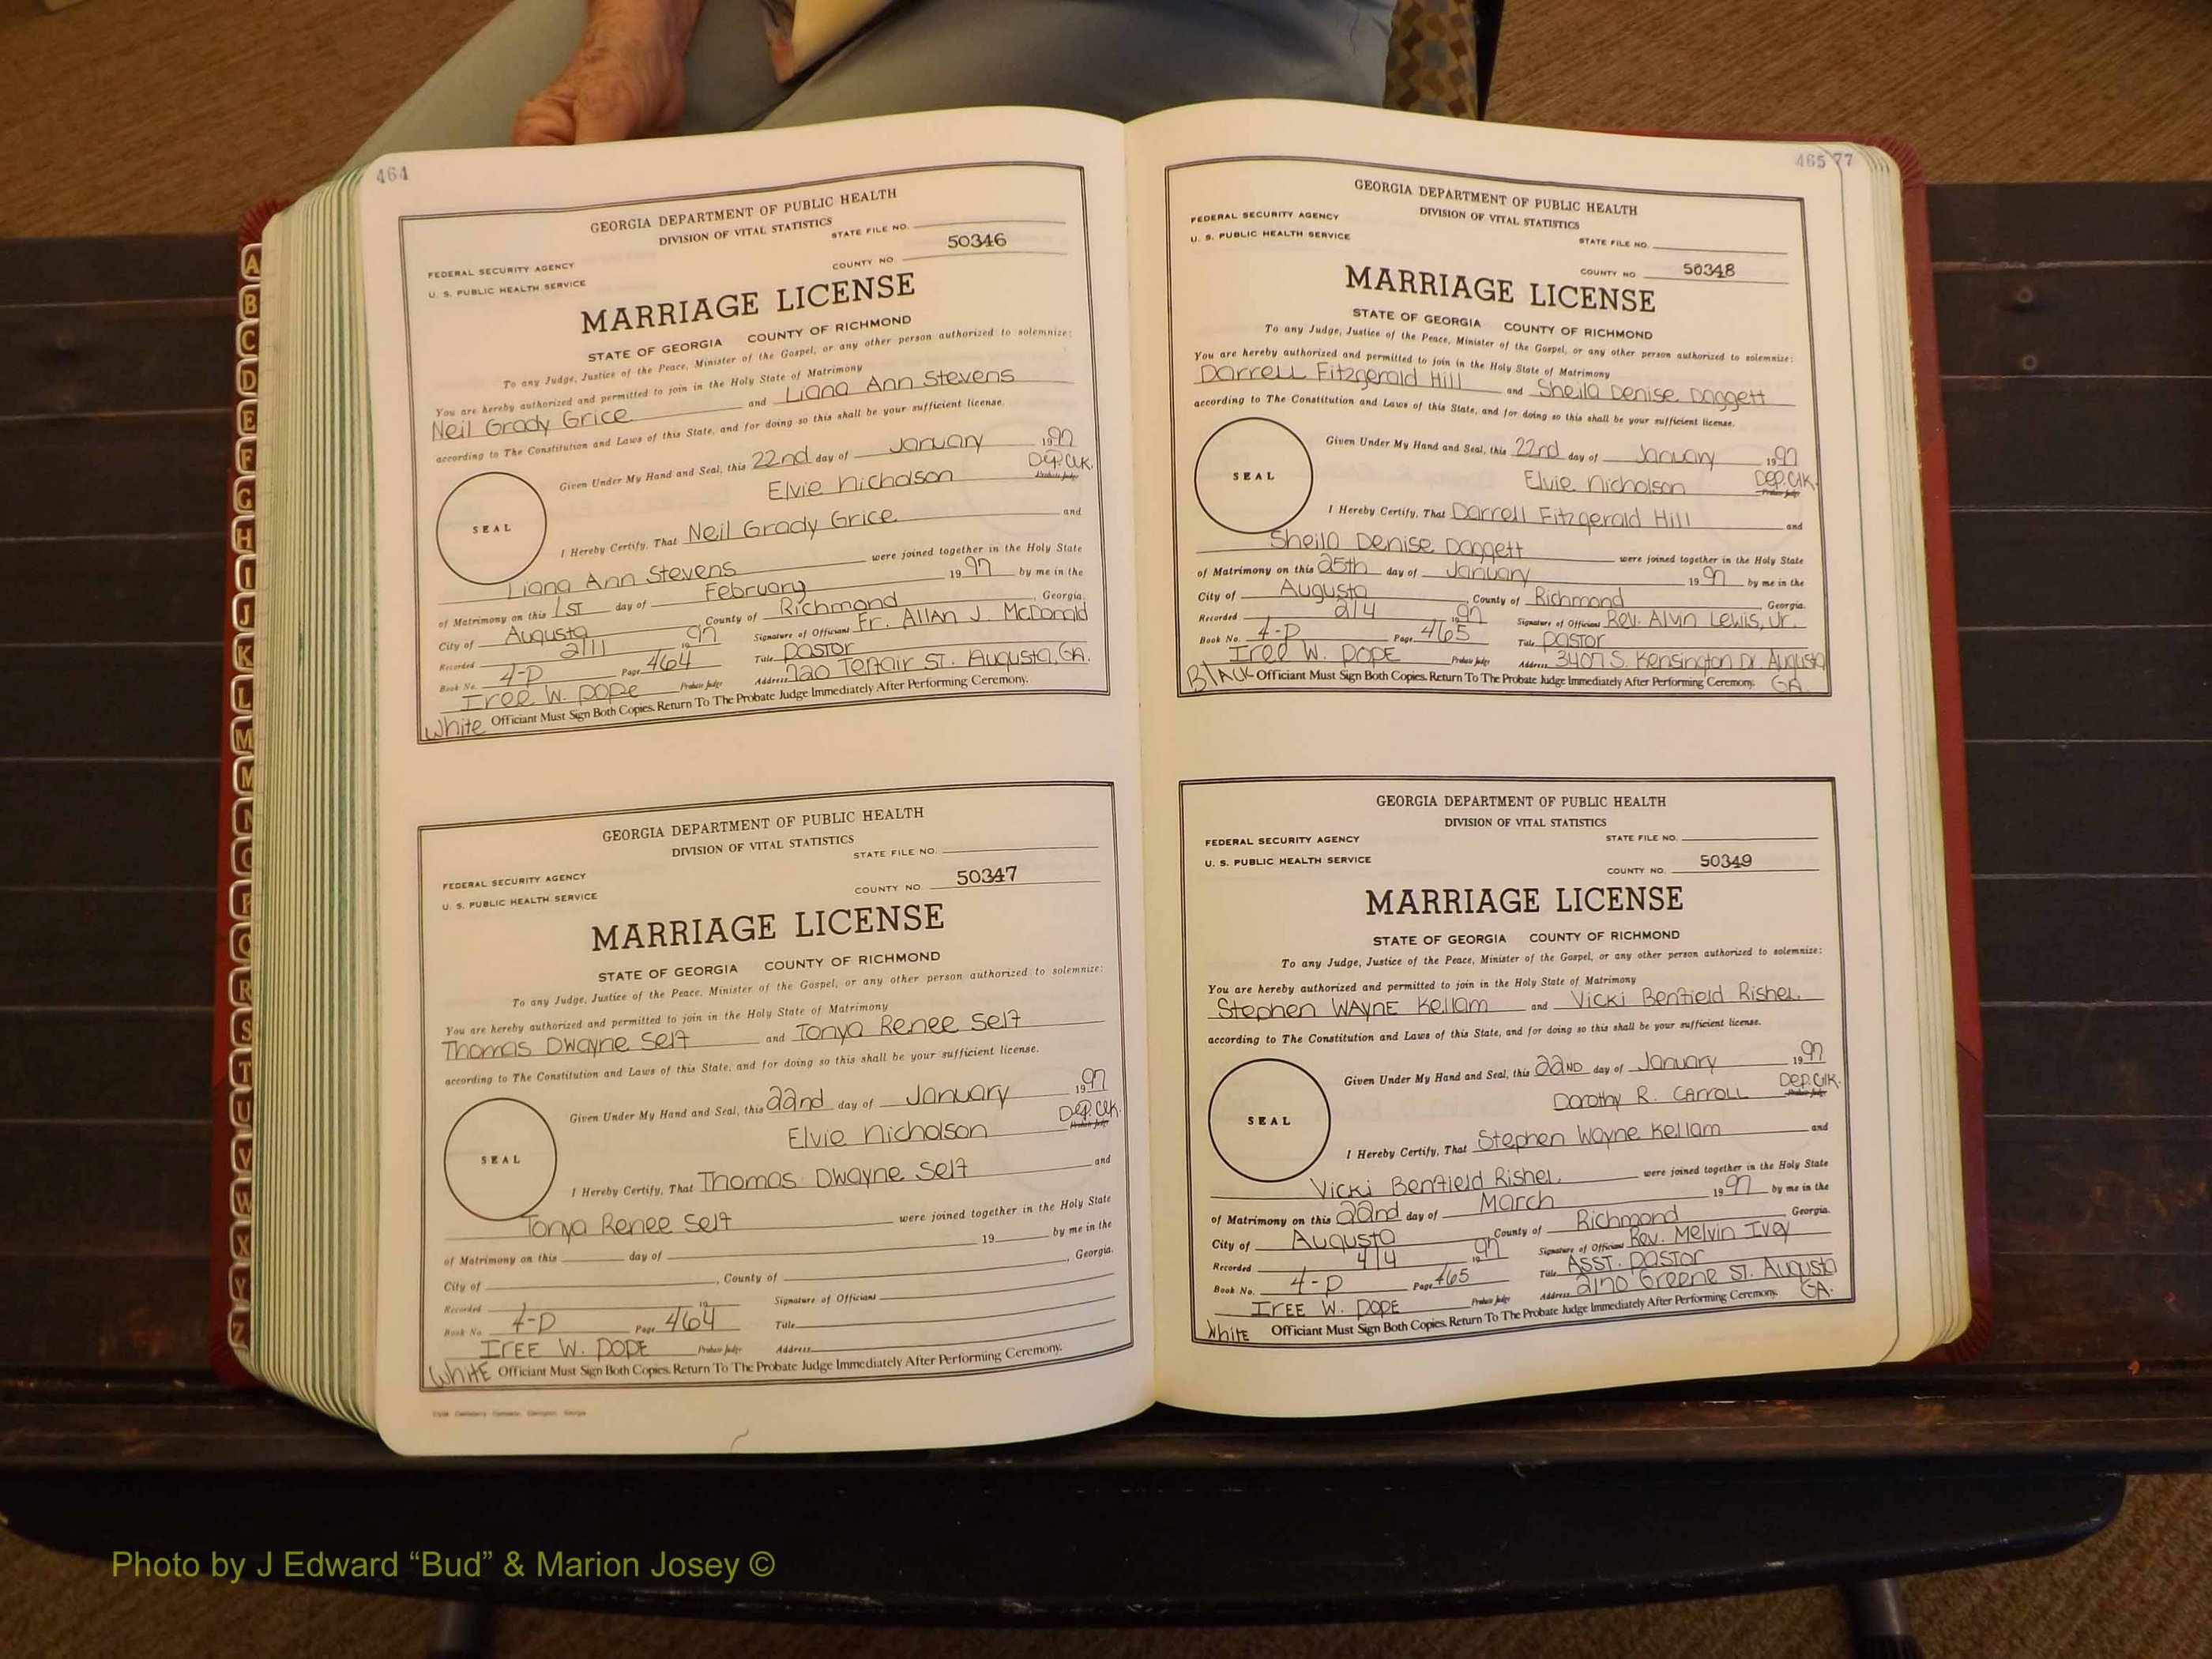 464
GEORGIA DEPARTMENT OF PUBLIC HEALTH
DIVISION OF VITAL STATISTICS
STATE FILE NO.
FEDERAL SECURITY AGENCY
U. S. PUBLIC HEALTH SERVICE
COUNTY NO. 50346
MARRIAGE LICENSE
STATE OF GEORGIA COUNTY OF RICHMOND
To any Judge, Justice of the Peace, Minister of the Gospel, or any other person authorized to solemnize:
You are hereby authorized and permitted to join in the Holy State of Matrimony
Neil Grady Grice and Liana Ann Stevens
according to The Constitution and Laws of this State, and for doing so this shall be your sufficient license.
Given Under My Hand and Seal, this 22nd day of January 1997
Elvie Nicholson Dep. Clk. Probate Judge
SEAL
I Hereby Certify, That Neil Grady Grice and
Liana Ann Stevens were joined together in the Holy State
of Matrimony on this 1ST day of February 1997 by me in the
City of Augusta, County of Richmond, Georgia.
Recorded 2/11 1997 Signature of Officiant Fr. Allan J. McDonald
Book No. 4-D Page 464 Title Pastor
Iree W. Pope Probate Judge Address 720 Telfair St. Augusta, GA.
White Officiant Must Sign Both Copies. Return To The Probate Judge Immediately After Performing Ceremony.
GEORGIA DEPARTMENT OF PUBLIC HEALTH
DIVISION OF VITAL STATISTICS
STATE FILE NO.
FEDERAL SECURITY AGENCY
U. S. PUBLIC HEALTH SERVICE
COUNTY NO. 50347
MARRIAGE LICENSE
STATE OF GEORGIA COUNTY OF RICHMOND
To any Judge, Justice of the Peace, Minister of the Gospel, or any other person authorized to solemnize:
You are hereby authorized and permitted to join in the Holy State of Matrimony
Thomas Dwayne Self and Tonya Renee Self
according to The Constitution and Laws of this State, and for doing so this shall be your sufficient license.
Given Under My Hand and Seal, this 22nd day of January 1997
Elvie Nicholson Dep. Clk. Probate Judge
SEAL
I Hereby Certify, That Thomas Dwayne Self and
Tonya Renee Self were joined together in the Holy State
of Matrimony on this day of 19 by me in the
City of , County of , Georgia.
Recorded 19 Signature of Officiant
Book No. 4-D Page 464 Title
Iree W. Pope Probate Judge Address
White Officiant Must Sign Both Copies. Return To The Probate Judge Immediately After Performing Ceremony.
465 77
GEORGIA DEPARTMENT OF PUBLIC HEALTH
DIVISION OF VITAL STATISTICS
FEDERAL SECURITY AGENCY
U. S. PUBLIC HEALTH SERVICE
STATE FILE NO.
COUNTY NO 50348
MARRIAGE LICENSE
STATE OF GEORGIA COUNTY OF RICHMOND
To any Judge, Justice of the Peace, Minister of the Gospel, or any other person authorized to solemnize:
You are hereby authorized and permitted to join in the Holy State of Matrimony
Darrell Fitzgerald Hill and Sheila Denise Daggett
according to The Constitution and Laws of this State, and for doing so this shall be your sufficient license.
Given Under My Hand and Seal, this 22nd day of January 1997
Elvie Nicholson Dep. Clk. Probate Judge
SEAL
I Hereby Certify, That Darrell Fitzgerald Hill and
Sheila Denise Daggett were joined together in the Holy State
of Matrimony on this 25th day of January 1997 by me in the
City of Augusta, County of Richmond, Georgia.
Recorded 2/4 1997 Signature of Officiant Rev. Alvin Lewis, Jr.
Book No. 4-D Page 465 Title Pastor
Iree W. Pope Probate Judge Address 3407 S. Kensington Dr. Augusta GA.
Black Officiant Must Sign Both Copies. Return To The Probate Judge Immediately After Performing Ceremony.
GEORGIA DEPARTMENT OF PUBLIC HEALTH
DIVISION OF VITAL STATISTICS
FEDERAL SECURITY AGENCY
STATE FILE NO.
U. S. PUBLIC HEALTH SERVICE
COUNTY NO. 50349
MARRIAGE LICENSE
STATE OF GEORGIA COUNTY OF RICHMOND
To any Judge, Justice of the Peace, Minister of the Gospel, or any other person authorized to solemnize:
You are hereby authorized and permitted to join in the Holy State of Matrimony
Stephen Wayne Kellam and Vicki Benfield Rishel
according to The Constitution and Laws of this State, and for doing so this shall be your sufficient license.
Given Under My Hand and Seal, this 22ND day of January 1997
Dorothy R. Carroll Dep. Clk. Probate Judge
SEAL
I Hereby Certify, That Stephen Wayne Kellam and
Vicki Benfield Rishel were joined together in the Holy State
of Matrimony on this 22nd day of March 1997 by me in the
City of Augusta County of Richmond Georgia.
Recorded 4/4 1997 Signature of Officiant Rev. Melvin Ivey
Book No. 4-D Page 465 Title Asst. Pastor
Iree W. Pope Probate Judge Address 2170 Greene St. Augusta GA.
White Officiant Must Sign Both Copies. Return To The Probate Judge Immediately After Performing Ceremony.
A
B
C
D
E
F
G
H
I
J
K
L
M
M
N
O
P
Q
R
S
T
U
V
W
X
Y
Z
Photo by J Edward “Bud” & Marion Josey ©